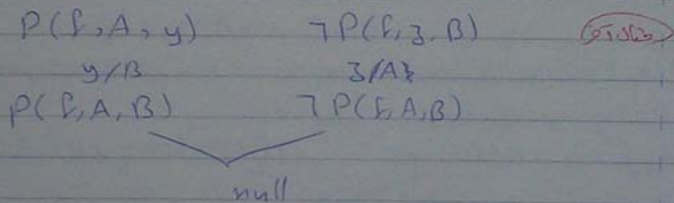 P(f, A, y) ¬P(f, z, B)
y/B z/A}
P(f, A, B) ¬P(f, A, B)
null